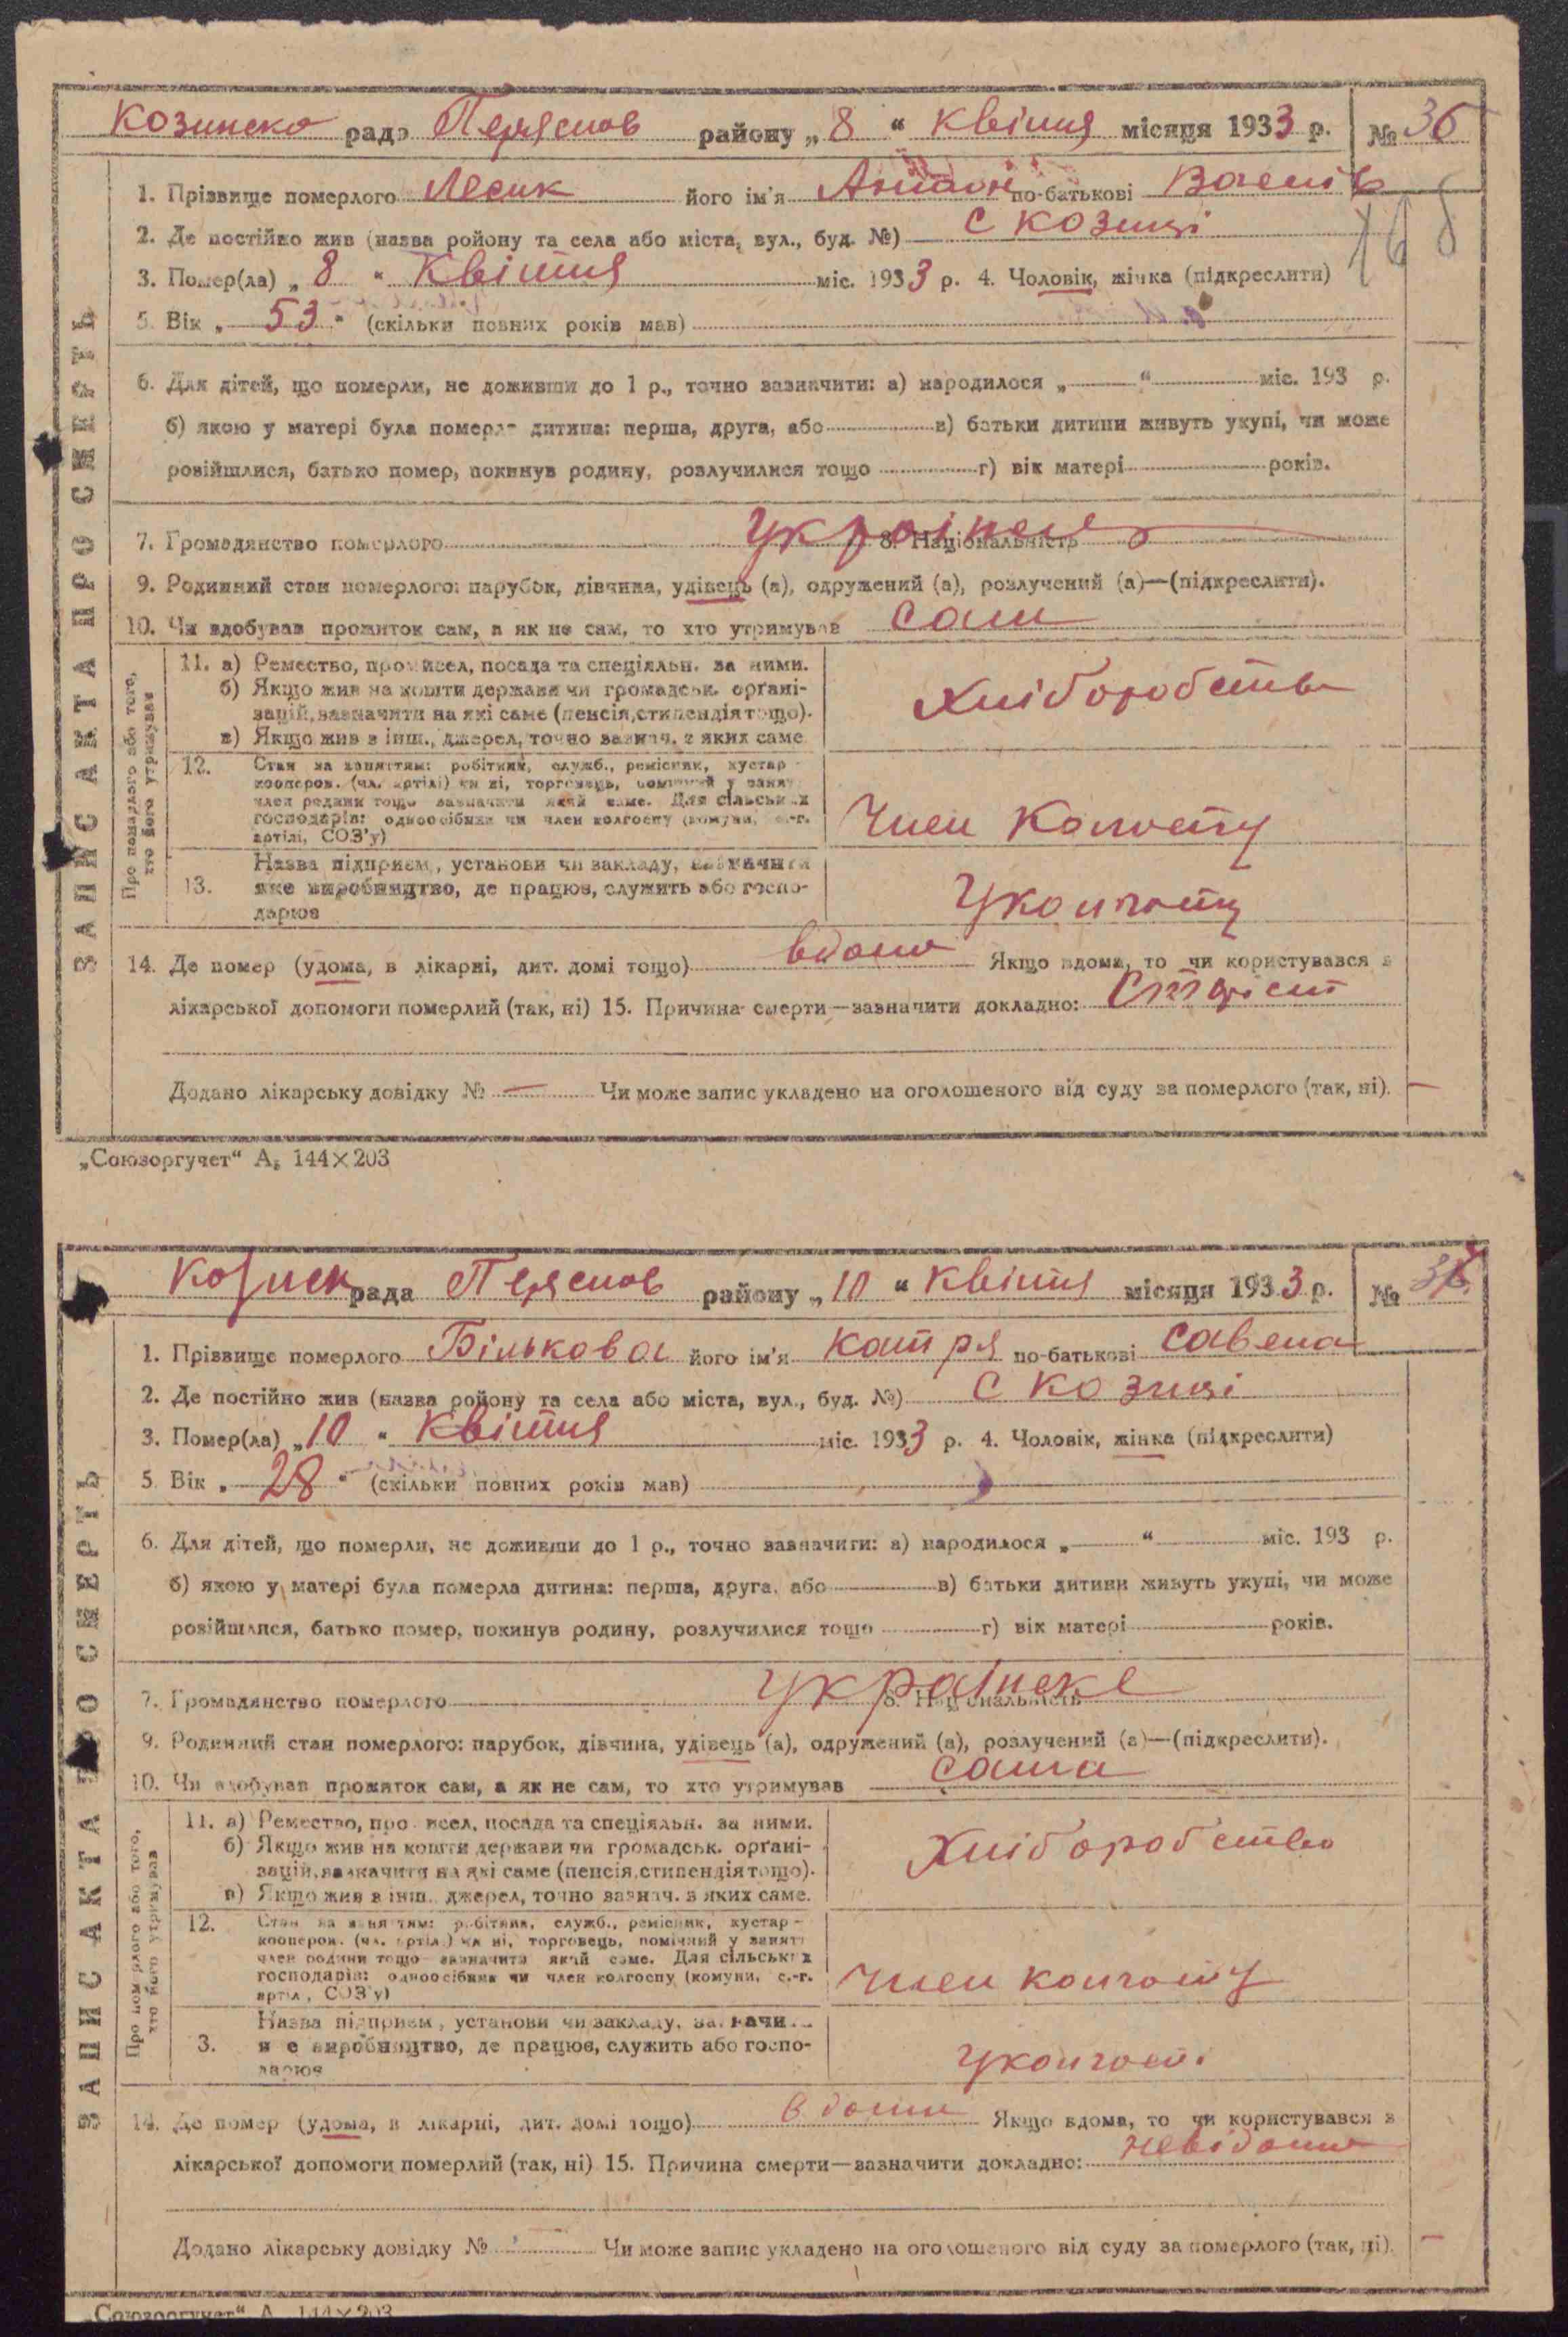 Козинско рада Переяслов району „ 8 “ Квітня місяця 1933 р. № 36
1. Прізвище померлого Лесик його ім'я Антон по-батькові
2. Де постійно жив (назва ройону та села або міста, вул., буд. №) С Козинці
3. Помер(ла) „ 8 “ Квітня міс. 1933 р. 4. Чоловік, жінка (підкреслити)
5. Вік „ 53 “ (скільки повних років мав)
6. Для дітей, що померли, не доживши до 1 р., точно зазначити: а) народилося „ “ міс. 193 р.
б) якою у матері була померла дитина: перша, друга, або в) батьки дитини живуть укупі, чи може
розійшлися, батько помер, покинув родину, розлучилися тощо г) вік матері років.
7. Громадянство померлого 8. Національність
9. Родинний стан померлого: парубок, дівчина, удівець (а), одружений (а), розлучений (а)—(підкреслити).
10. Чи здобував прожиток сам, а як не сам, то хто утримував сам
11. а) Ремество, промисел, посада та спеціяльн. за ними.
б) Якщо жив на кошти держави чи громадськ. орґані-
зацій, зазначити на які саме (пенсія, стипендія тощо).
в) Якщо жив з інш., джерел, точно зазнач. з яких саме
Хліборобство
12. Стан за заняттям: робітник, служб., ремісник, кустар -
кооперов. (чл. артілі) чи ні, торговець, помічний у занят
член родини тощо зазначити який саме. Для сільських
господарів: одноосібник чи член колгоспу (комуни, с.-г.
артілі, СОЗ'у)
Член Колгоспу
13. Назва підприєм., установи чи закладу, зазначити
яке виробництво, де працює, служить або госпо-
дарює
У колгоспу
14. Де помер (удома, в лікарні, дит. домі тощо) вдома Якщо вдома, то чи користувався з
лікарської допомоги померлий (так, ні) 15. Причина смерти—зазначити докладно:
Додано лікарську довідку № — Чи може запис укладено на оголошеного від суду за померлого (так, ні). —
ЗАПИС АКТА ПРО СМЕРТЬ
Про померлого або того,
хто його утримував
„Союзоргучет“ А₅ 144×203
Козинск рада Переяслов району „ 10 “ Квітня місяця 1933 р. №
1. Прізвище померлого Бількова його ім'я Катря по-батькові Савена
2. Де постійно жив (назва ройону та села або міста, вул., буд. №) С Козинці
3. Помер(ла) „ 10 “ Квітня міс. 1933 р. 4. Чоловік, жінка (підкреслити)
5. Вік „ 28 “ (скільки повних років мав)
6. Для дітей, що померли, не доживши до 1 р., точно зазначити: а) народилося „ “ міс. 193 р.
б) якою у матері була померла дитина: перша, друга, або в) батьки дитини живуть укупі, чи може
розійшлися, батько помер, покинув родину, розлучилися тощо г) вік матері років.
7. Громадянство померлого Українске 8. Національність
9. Родинний стан померлого: парубок, дівчина, удівець (а), одружений (а), розлучений (а)—(підкреслити).
10. Чи здобував прожиток сам, а як не сам, то хто утримував сама
11. а) Ремество, промисел, посада та спеціяльн. за ними.
б) Якщо жив на кошти держави чи громадськ. орґані-
зацій, зазначити на які саме (пенсія, стипендія тощо).
в) Якщо жив з інш., джерел, точно зазнач. з яких саме.
Хліборобство
12. Стан за заняттям: робітник, служб., ремісник, кустар -
кооперов. (чл. артілі) чи ні, торговець, помічний у занятт
член родини тощо зазначити який саме. Для сільських
господарів: одноосібник чи член колгоспу (комуни, с.-г.
артілі, СОЗ'у)
Член колгоспу
3. Назва підприєм., установи чи закладу, зазначи
яке виробництво, де працює, служить або госпо-
дарює
У колгосп.
14. Де помер (удома, в лікарні, дит. домі тощо) вдома Якщо вдома, то чи користувався з
лікарської допомоги померлий (так, ні) 15. Причина смерти—зазначити докладно: невідомо
Додано лікарську довідку № Чи може запис укладено на оголошеного від суду за померлого (так, ні). —
ЗАПИС АКТА ПРО СМЕРТЬ
Про померлого або того,
хто його утримував
„Союзоргучет“ А 144×203